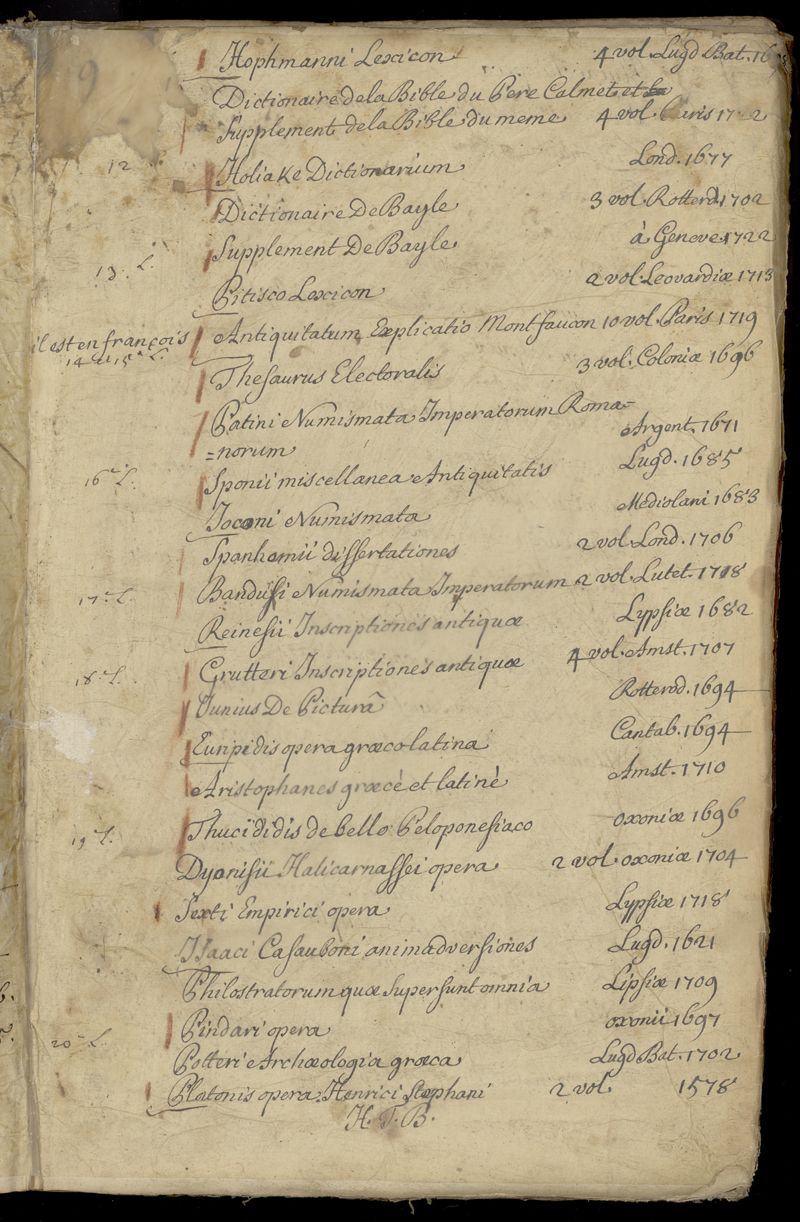 Hophmanni Lexicon 4 vol. Lugd Bat. 16
Dictionaire de la Bible du Pere Calmet et le
Supplement de la Bible du meme 4 vol. Paris
12 L.
Holiake Dictionarium Lond. 1677
Dictionaire De Bayle 3 vol. Rotterd. 1702
Supplement De Bayle à Geneve. 1722
13. L.
Pitisco Lexicon 2 vol. Leovardiæ 1713
il est en françois
Antiquitatum Explicatio Montfaucon 10 vol. Paris 1719
14 et 15e L.
Thesaurus Electoralis 3 vol. Coloniæ 1696
Patini Numismata Imperatorum Roma=
=norum Argent. 1671
16e L.
Sponii miscellanea Antiquitatis Lugd. 1685
Joconi Numismata Mediolani 1683
Spanhemii dissertationes 2 vol. Lond. 1706
17e L.
Bandusi Numismata Imperatorum 2 vol. Lutet. 1718
Reinesii Inscriptiones antiquæ Lypsiæ 1682
18e L.
Grutteri Inscriptiones antiquæ 4 vol. Amst. 1707
Junius De Picturâ Rotterod. 1694
Euripidis opera græcolatina Cantab. 1694
Aristophanes græcè et latinè Amst. 1710
19e L.
Thucididis de bello Peloponesiaco oxoniæ 1696
Dyonisii Halicarnassei opera 2 vol. oxoniæ 1704
Sexti Empirici opera Lypsiæ 1718
Isaaci Casauboni animadversiones Lugd. 1621
Philostratorum quæ supersunt omnia Lipsiæ 1709
20e L.
Pindari opera oxonii 1697
Potteri Archæologia græca Lugd Bat. 1702
Platonis opera Henrici Stephani 2 vol. 1578
H. T. B.